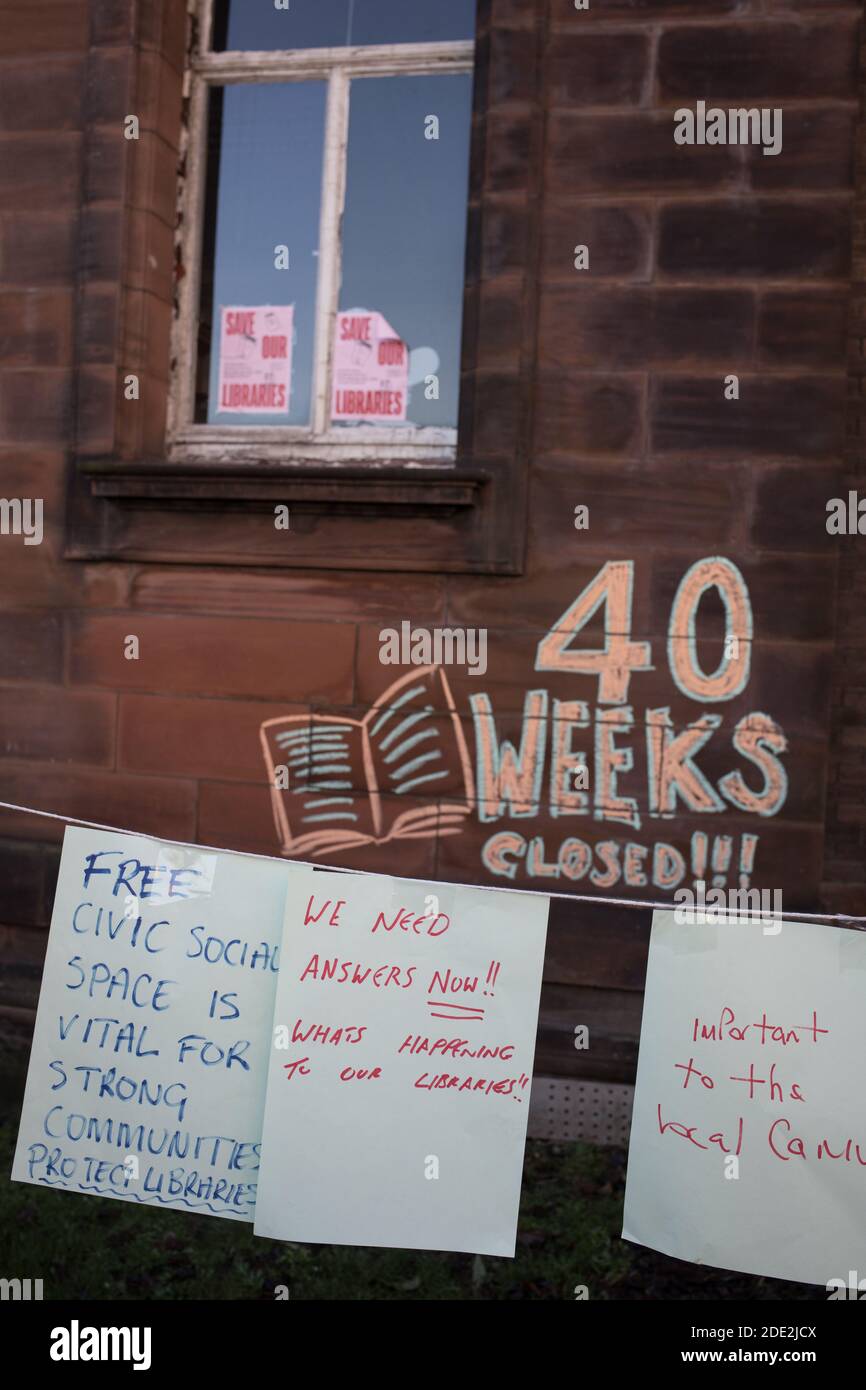 SAVE
OUR
LIBRARIES
SAVE
OUR
LIBRARIES
40
WEEKS
CLOSED!!!
FREE
CIVIC SOCIAL
SPACE IS
VITAL FOR
STRONG
COMMUNITIES
PROTECT LIBRARIES
WE NEED
ANSWERS NOW!!
WHATS HAPPENING
TO OUR LIBRARIES!!
Important
to the
local
alamy
Image ID: 2DE2JCX
www.alamy.com